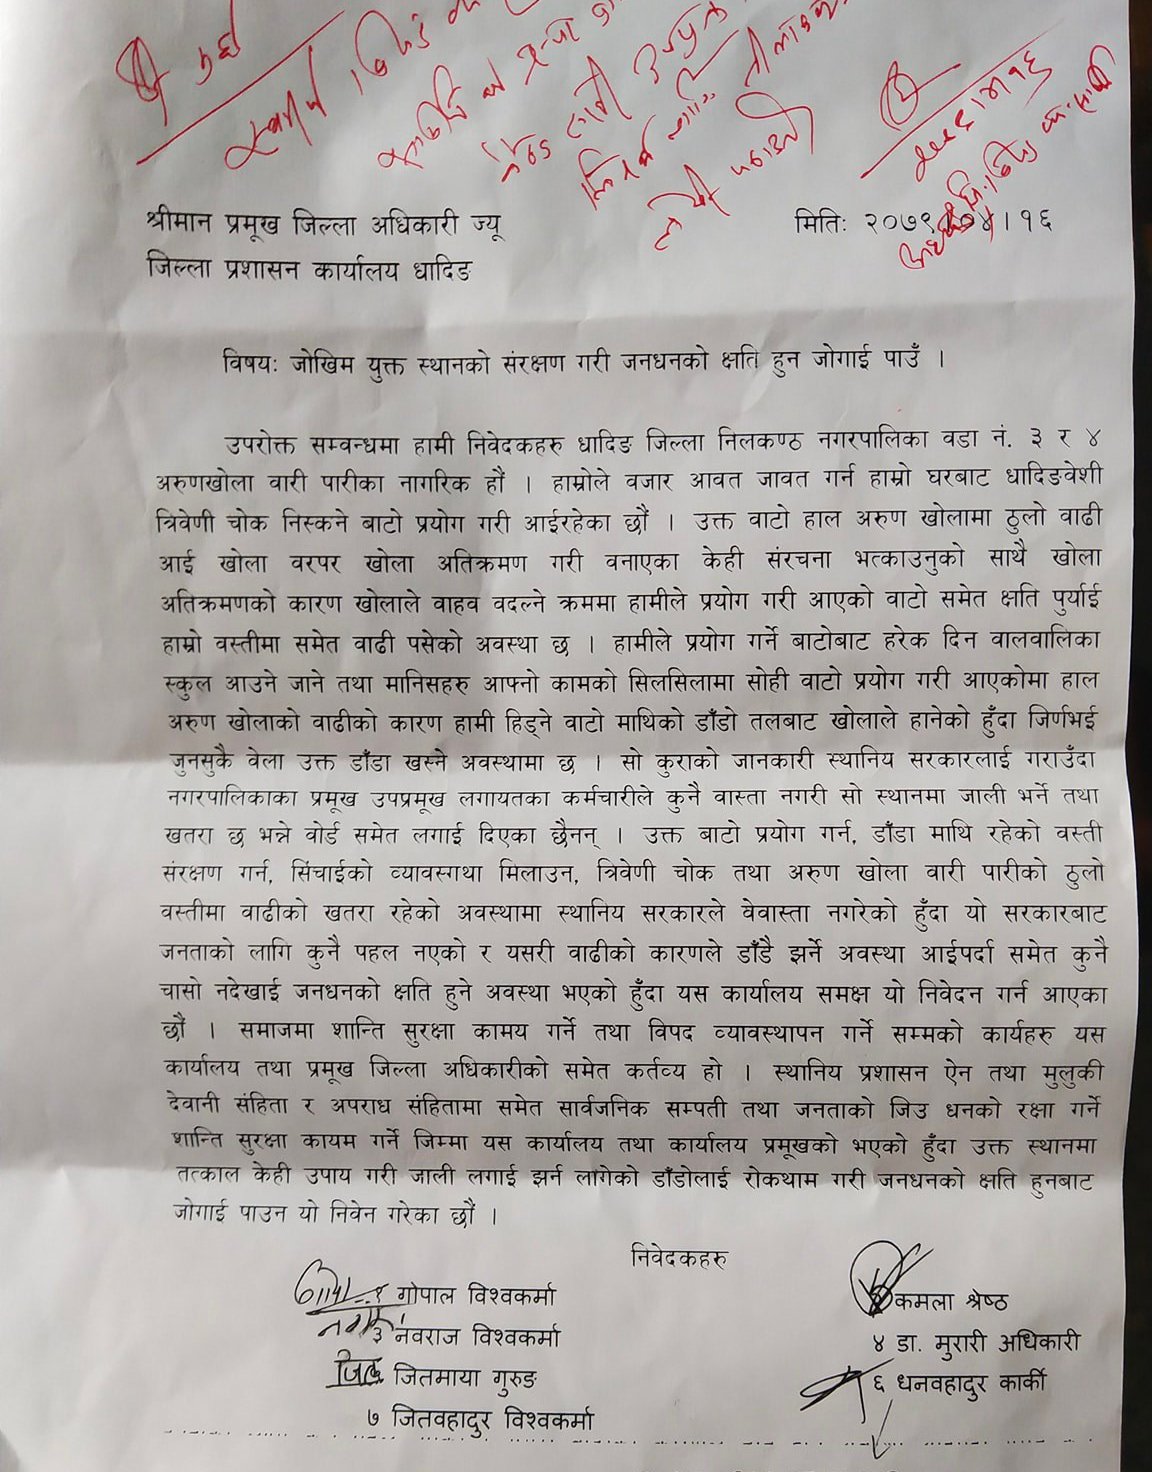 श्रीमान प्रमूख जिल्ला अधिकारी ज्यू
मितिः २०७९।०४।१६
जिल्ला प्रशासन कार्यालय धादिङ
विषयः जोखिम युक्त स्थानको संरक्षण गरी जनधनको क्षति हुन जोगाई पाउँ ।
उपरोक्त सम्वन्धमा हामी निवेदकहरु धादिङ जिल्ला निलकण्ठ नगरपालिका वडा नं. ३ र ४
अरुणखोला वारी पारीका नागरिक हौं । हाम्रोले वजार आवत जावत गर्न हाम्रो घरबाट धादिङवेशी
त्रिवेणी चोक निस्कने बाटो प्रयोग गरी आईरहेका छौं । उक्त वाटो हाल अरुण खोलामा ठुलो वाढी
आई खोला वरपर खोला अतिक्रमण गरी वनाएका केही संरचना भत्काउनुको साथै खोला
अतिक्रमणको कारण खोलाले वाहव वदल्ने क्रममा हामीले प्रयोग गरी आएको वाटो समेत क्षति पुर्याई
हाम्रो वस्तीमा समेत वाढी पसेको अवस्था छ । हामीले प्रयोग गर्ने बाटोबाट हरेक दिन वालवालिका
स्कुल आउने जाने तथा मानिसहरु आफ्नो कामको सिलसिलामा सोही वाटो प्रयोग गरी आएकोमा हाल
अरुण खोलाको वाढीको कारण हामी हिड्ने वाटो माथिको डाँडो तलबाट खोलाले हानेको हुँदा जिर्णभई
जुनसुकै वेला उक्त डाँडा खस्ने अवस्थामा छ । सो कुराको जानकारी स्थानिय सरकारलाई गराउँदा
नगरपालिकाका प्रमूख उपप्रमूख लगायतका कर्मचारीले कुनै वास्ता नगरी सो स्थानमा जाली भर्ने तथा
खतरा छ भन्ने वोर्ड समेत लगाई दिएका छैनन् । उक्त बाटो प्रयोग गर्न, डाँडा माथि रहेको वस्ती
संरक्षण गर्न, सिंचाईको व्यावस्गथा मिलाउन, त्रिवेणी चोक तथा अरुण खोला वारी पारीको ठुलो
वस्तीमा वाढीको खतरा रहेको अवस्थामा स्थानिय सरकारले वेवास्ता नगरेको हुँदा यो सरकारबाट
जनताको लागि कुनै पहल नएको र यसरी वाढीको कारणले डाँडै झर्ने अवस्था आईपर्दा समेत कुनै
चासो नदेखाई जनधनको क्षति हुने अवस्था भएको हुँदा यस कार्यालय समक्ष यो निवेदन गर्न आएका
छौं । समाजमा शान्ति सुरक्षा कामय गर्ने तथा विपद व्यावस्थापन गर्ने सम्मको कार्यहरु यस
कार्यालय तथा प्रमूख जिल्ला अधिकारीको समेत कर्तव्य हो । स्थानिय प्रशासन ऐन तथा मुलुकी
देवानी संहिता र अपराध संहितामा समेत सार्वजनिक सम्पती तथा जनताको जिउ धनको रक्षा गर्ने
शान्ति सुरक्षा कायम गर्ने जिम्मा यस कार्यालय तथा कार्यालय प्रमूखको भएको हुँदा उक्त स्थानमा
तत्काल केही उपाय गरी जाली लगाई झर्न लागेको डाँडोलाई रोकथाम गरी जनधनको क्षति हुनबाट
जोगाई पाउन यो निवेन गरेका छौं ।
निवेदकहरु
१ गोपाल विश्वकर्मा
कमला श्रेष्ठ
३ नवराज विश्वकर्मा
४ डा. मुरारी अधिकारी
जितमाया गुरुङ
६ धनवहादुर कार्की
७ जितवहादुर विश्वकर्मा